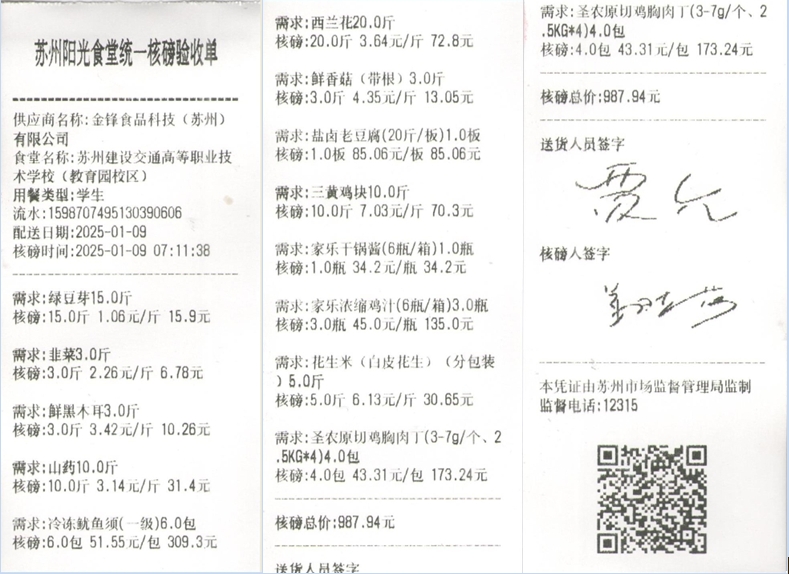 苏州阳光食堂统一核磅验收单
供应商名称:金锋食品科技（苏州）
有限公司
食堂名称:苏州建设交通高等职业技
术学校（教育园校区）
用餐类型:学生
流水:1598707495130390606
配送日期:2025-01-09
核磅时间:2025-01-09 07:11:38
需求:绿豆芽15.0斤
核磅:15.0斤 1.06元/斤 15.9元
需求:韭菜3.0斤
核磅:3.0斤 2.26元/斤 6.78元
需求:鲜黑木耳3.0斤
核磅:3.0斤 3.42元/斤 10.26元
需求:山药10.0斤
核磅:10.0斤 3.14元/斤 31.4元
需求:冷冻鱿鱼须(一级)6.0包
核磅:6.0包 51.55元/包 309.3元
需求:西兰花20.0斤
核磅:20.0斤 3.64元/斤 72.8元
需求:鲜香菇（带根）3.0斤
核磅:3.0斤 4.35元/斤 13.05元
需求:盐卤老豆腐(20斤/板)1.0板
核磅:1.0板 85.06元/板 85.06元
需求:三黄鸡块10.0斤
核磅:10.0斤 7.03元/斤 70.3元
需求:家乐干锅酱(6瓶/箱)1.0瓶
核磅:1.0瓶 34.2元/瓶 34.2元
需求:家乐浓缩鸡汁(6瓶/箱)3.0瓶
核磅:3.0瓶 45.0元/瓶 135.0元
需求:花生米（白皮花生）（分包装
）5.0斤
核磅:5.0斤 6.13元/斤 30.65元
需求:圣农原切鸡胸肉丁(3-7g/个、2
.5KG*4)4.0包
核磅:4.0包 43.31元/包 173.24元
核磅总价:987.94元
送货人员签字
需求:圣农原切鸡胸肉丁(3-7g/个、2
.5KG*4)4.0包
核磅:4.0包 43.31元/包 173.24元
核磅总价:987.94元
送货人员签字
核磅人签字
本凭证由苏州市场监督管理局监制
监督电话:12315